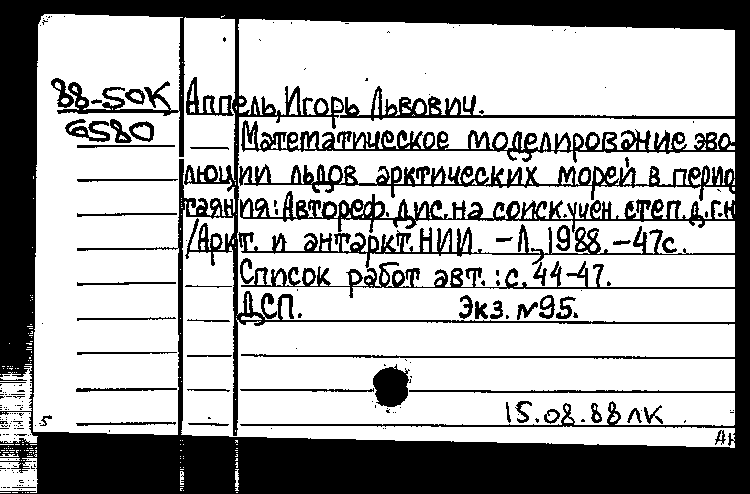 88-50К Аппель, Игорь Львович.
6580 Математическое моделирование эво-
люции льдов арктических морей в перио
таяния: Автореф. дис. на соиск. учен. степ. д. г. н
/Аркт. и антаркт. НИИ. – Л., 1988. – 47с.
Список работ авт.: с. 44-47.
ДСП. Экз. №95.
15.08.88 ЛК
5